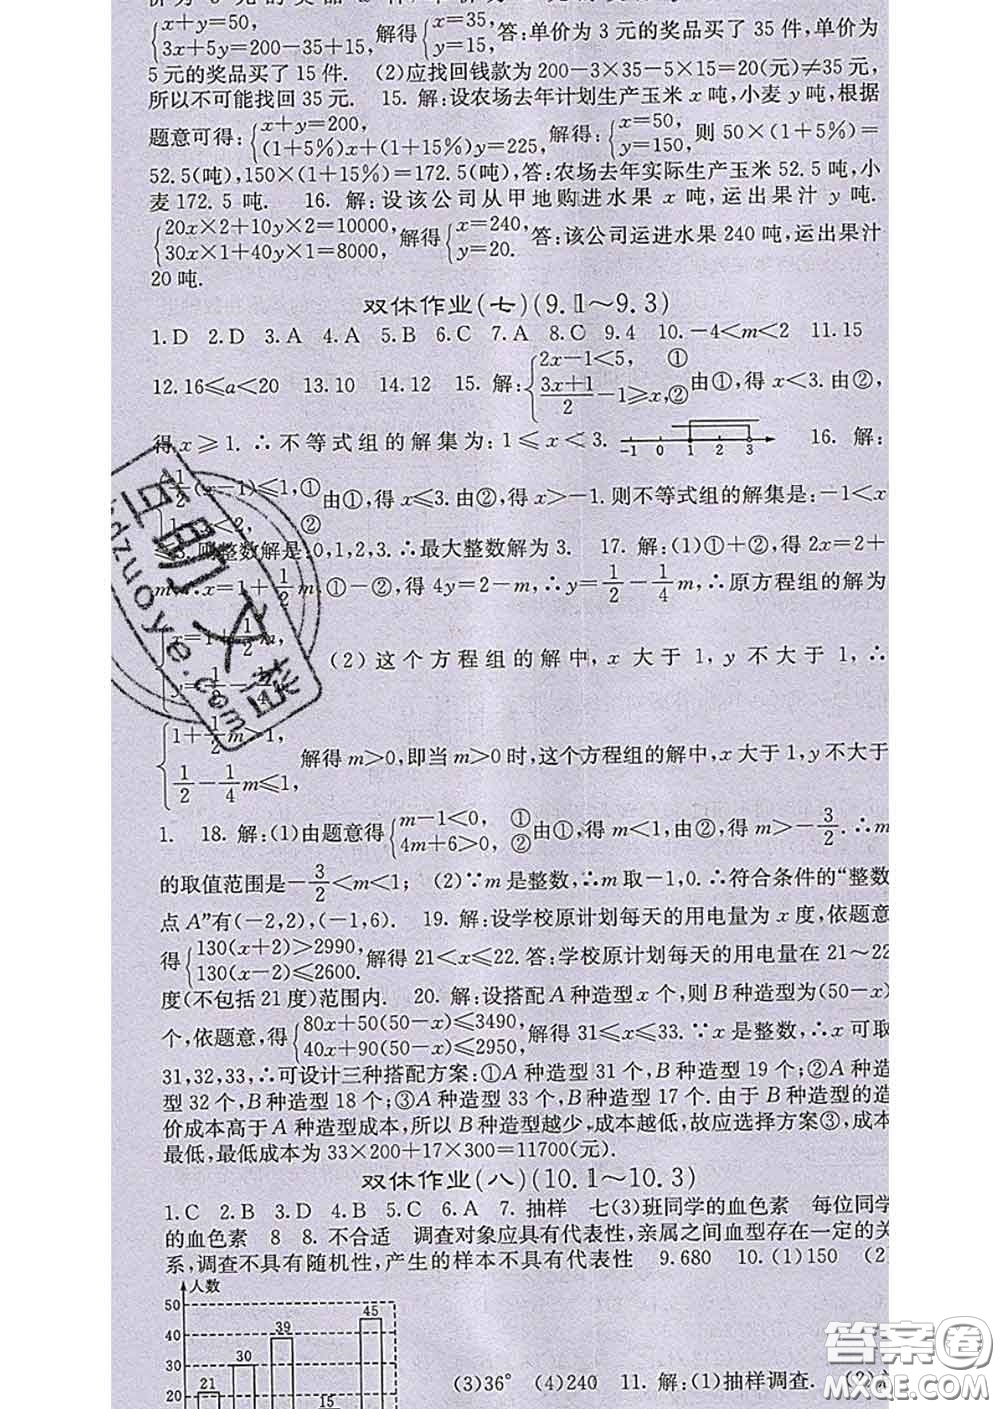 x+y=50,
3x+5y=200-35+15, 解得 x=35, y=15, 答:单价为 3 元的奖品买了 35 件,单价为
5 元的奖品买了 15 件. (2)应找回钱款为 200-3×35-5×15=20(元)≠35 元,
所以不可能找回 35 元. 15. 解:设农场去年计划生产玉米 x 吨,小麦 y 吨,根据
题意可得: x+y=200, (1+5%)x+(1+15%)y=225, 解得: x=50, y=150, 则 50×(1+5%)=
52.5(吨),150×(1+15%)=172.5(吨),答:农场去年实际生产玉米 52.5 吨,小
麦 172.5 吨. 16. 解:设该公司从甲地购进水果 x 吨,运出果汁 y 吨.
20x×2+10y×2=10000, 30x×1+40y×1=8000, 解得 x=240, y=20. 答:该公司运进水果 240 吨,运出果汁
20 吨.
双休作业(七)(9.1～9.3)
1.D 2.D 3.A 4.A 5.B 6.C 7.A 8.C 9.4 10.-4<m<2 11.15
12.16≤a<20 13.10 14.12 15. 解: 2x-1<5, ① (3x+1)/2-1≥x,② 由①,得 x<3.由②,
得 x≥1.∴不等式组的解集为:1≤x<3. -1 0 1 2 3 16. 解:
1/2(x-1)≤1,① 1-x<2, ② 由①,得 x≤3.由②,得 x>-1.则不等式组的解集是:-1<x
≤3.则整数解是:0,1,2,3.∴最大整数解为 3. 17. 解:(1)①+②,得 2x=2+
m,∴x=1+1/2m.①-②,得 4y=2-m,∴y=1/2-1/4m,∴原方程组的解为
x=1+1/2m, (2)这个方程组的解中,x 大于 1,y 不大于 1,∴
1+1/2m>1, 1/2-1/4m≤1, 解得 m>0,即当 m>0 时,这个方程组的解中,x 大于 1,y 不大于
1. 18. 解:(1)由题意得 m-1<0, ① 4m+6>0, ② 由①,得 m<1,由②,得 m>-3/2.∴m
的取值范围是-3/2<m<1; (2)∵m 是整数,∴m 取-1,0.∴符合条件的“整数
点 A”有(-2,2),(-1,6). 19. 解:设学校原计划每天的用电量为 x 度,依题意
得 130(x+2)>2990, 130(x-2)≤2600. 解得 21<x≤22.答:学校原计划每天的用电量在 21～22
度(不包括 21 度)范围内. 20. 解:设搭配 A 种造型 x 个,则 B 种造型为(50-x)
个,依题意,得 80x+50(50-x)≤3490, 40x+90(50-x)≤2950, 解得 31≤x≤33.∵x 是整数,∴x 可取
31,32,33,∴可设计三种搭配方案:①A 种造型 31 个,B 种造型 19 个;②A 种造
型 32 个,B 种造型 18 个;③A 种造型 33 个,B 种造型 17 个.由于 B 种造型的造
价成本高于 A 种造型成本,所以 B 种造型越少,成本越低,故应选择方案③,成本
最低,最低成本为 33×200+17×300=11700(元).
双休作业(八)(10.1～10.3)
1.C 2.B 3.D 4.C 5.C 6.A 7. 抽样 七(3)班同学的血色素 每位同学
的血色素 8 8. 不合适 调查对象应具有代表性,亲属之间血型存在一定的关
系,调查不具有随机性,产生的样本不具有代表性 9.680 10.(1)150 (2)
人数
50 45
40 39
30 30
20 21 15
(3)36° (4)240 11. 解:(1)抽样调查. (2)
答案圈
MXQE.COM